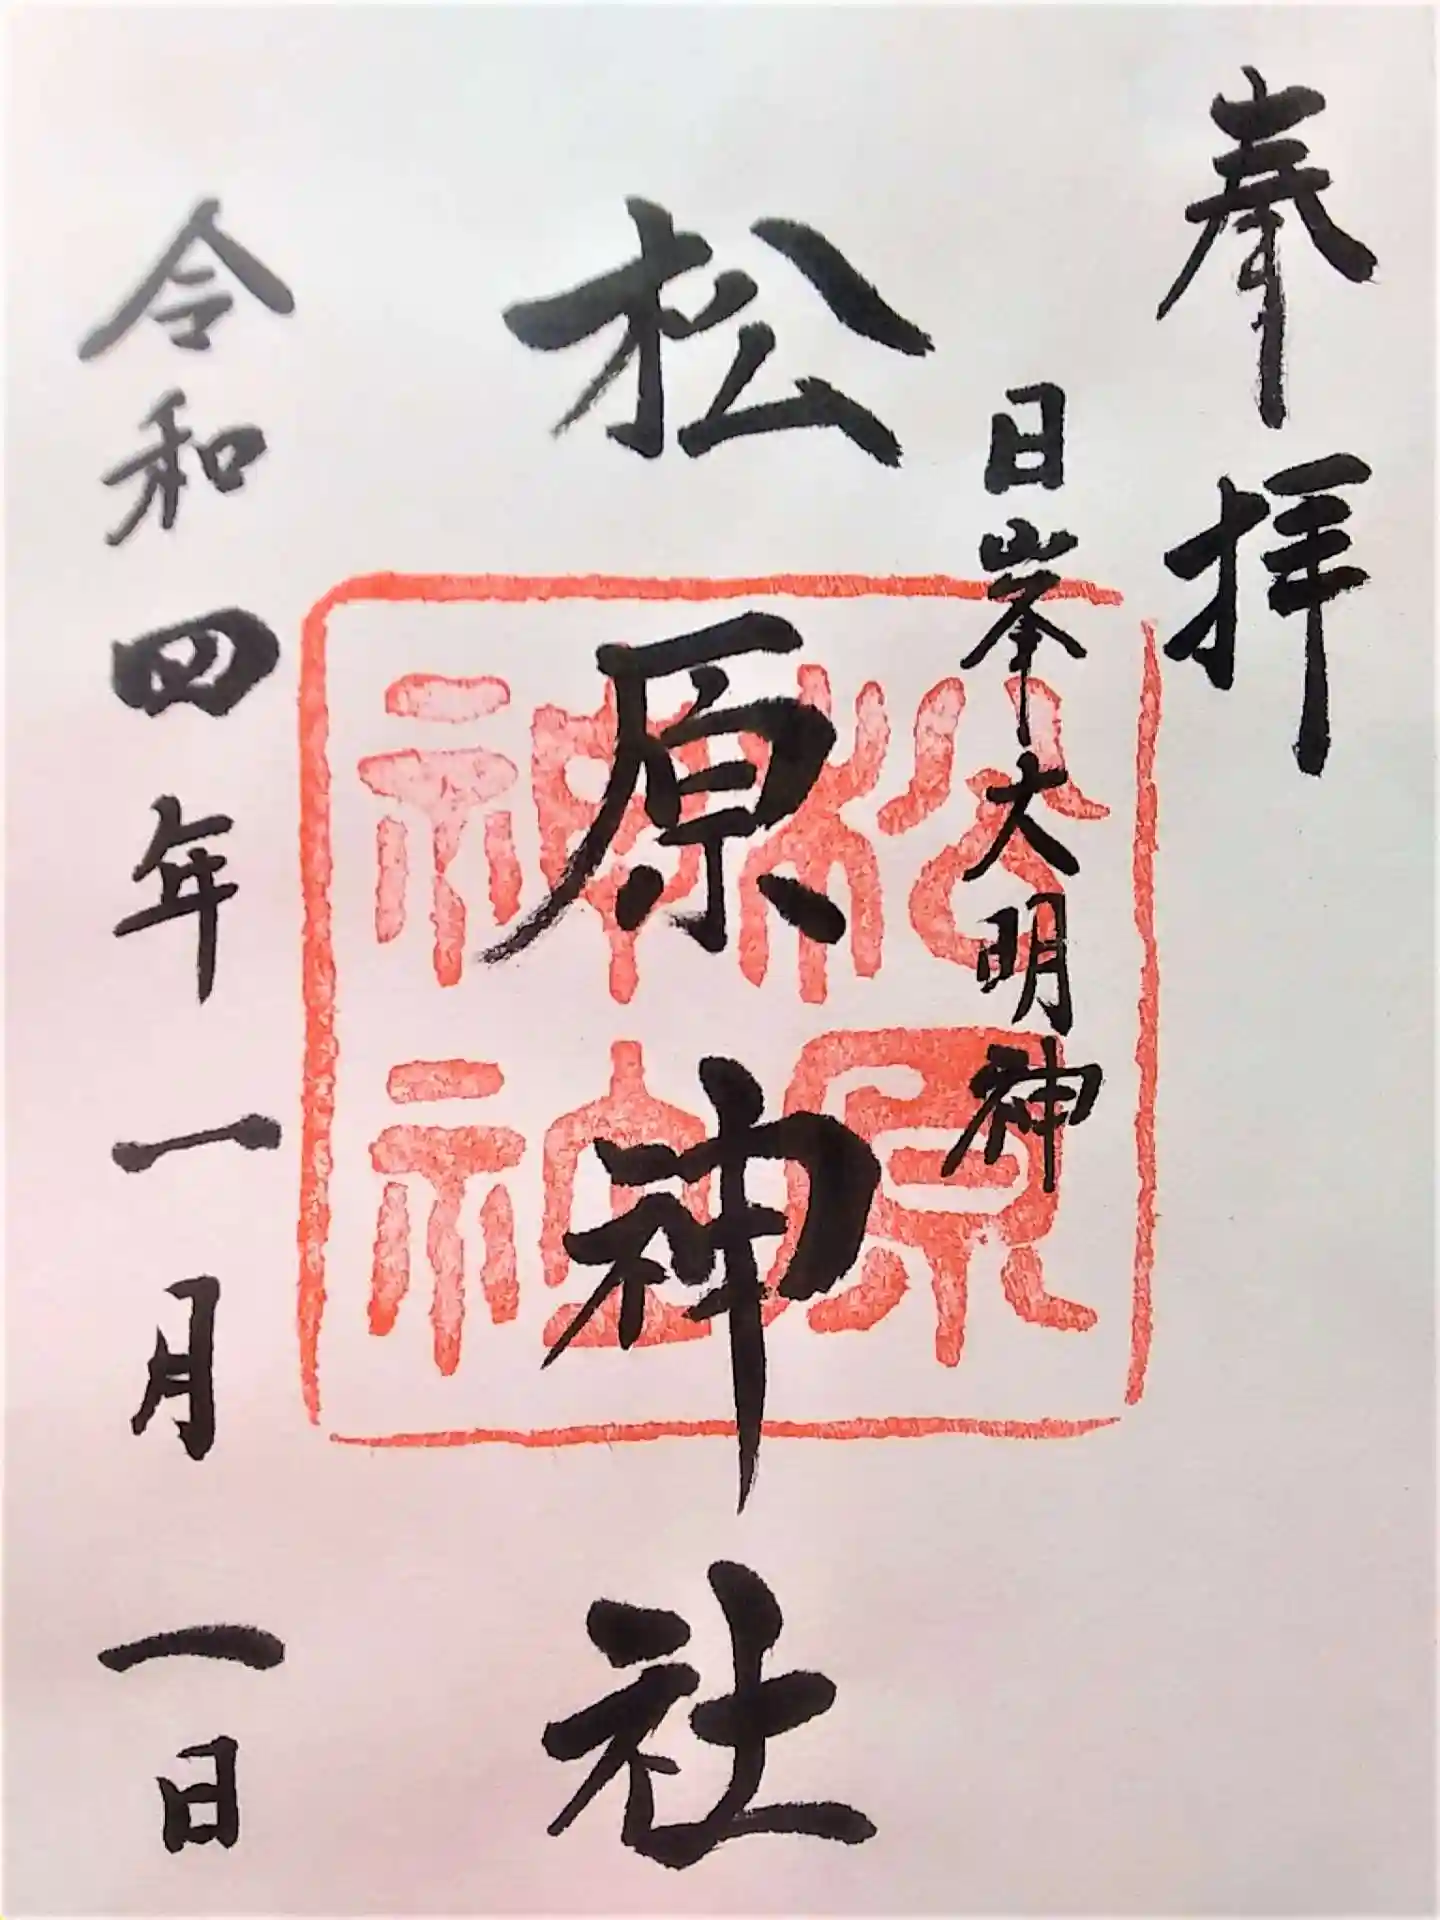 奉拝
日峯大明神
松原神社
松原
神社
令和四年一月一日